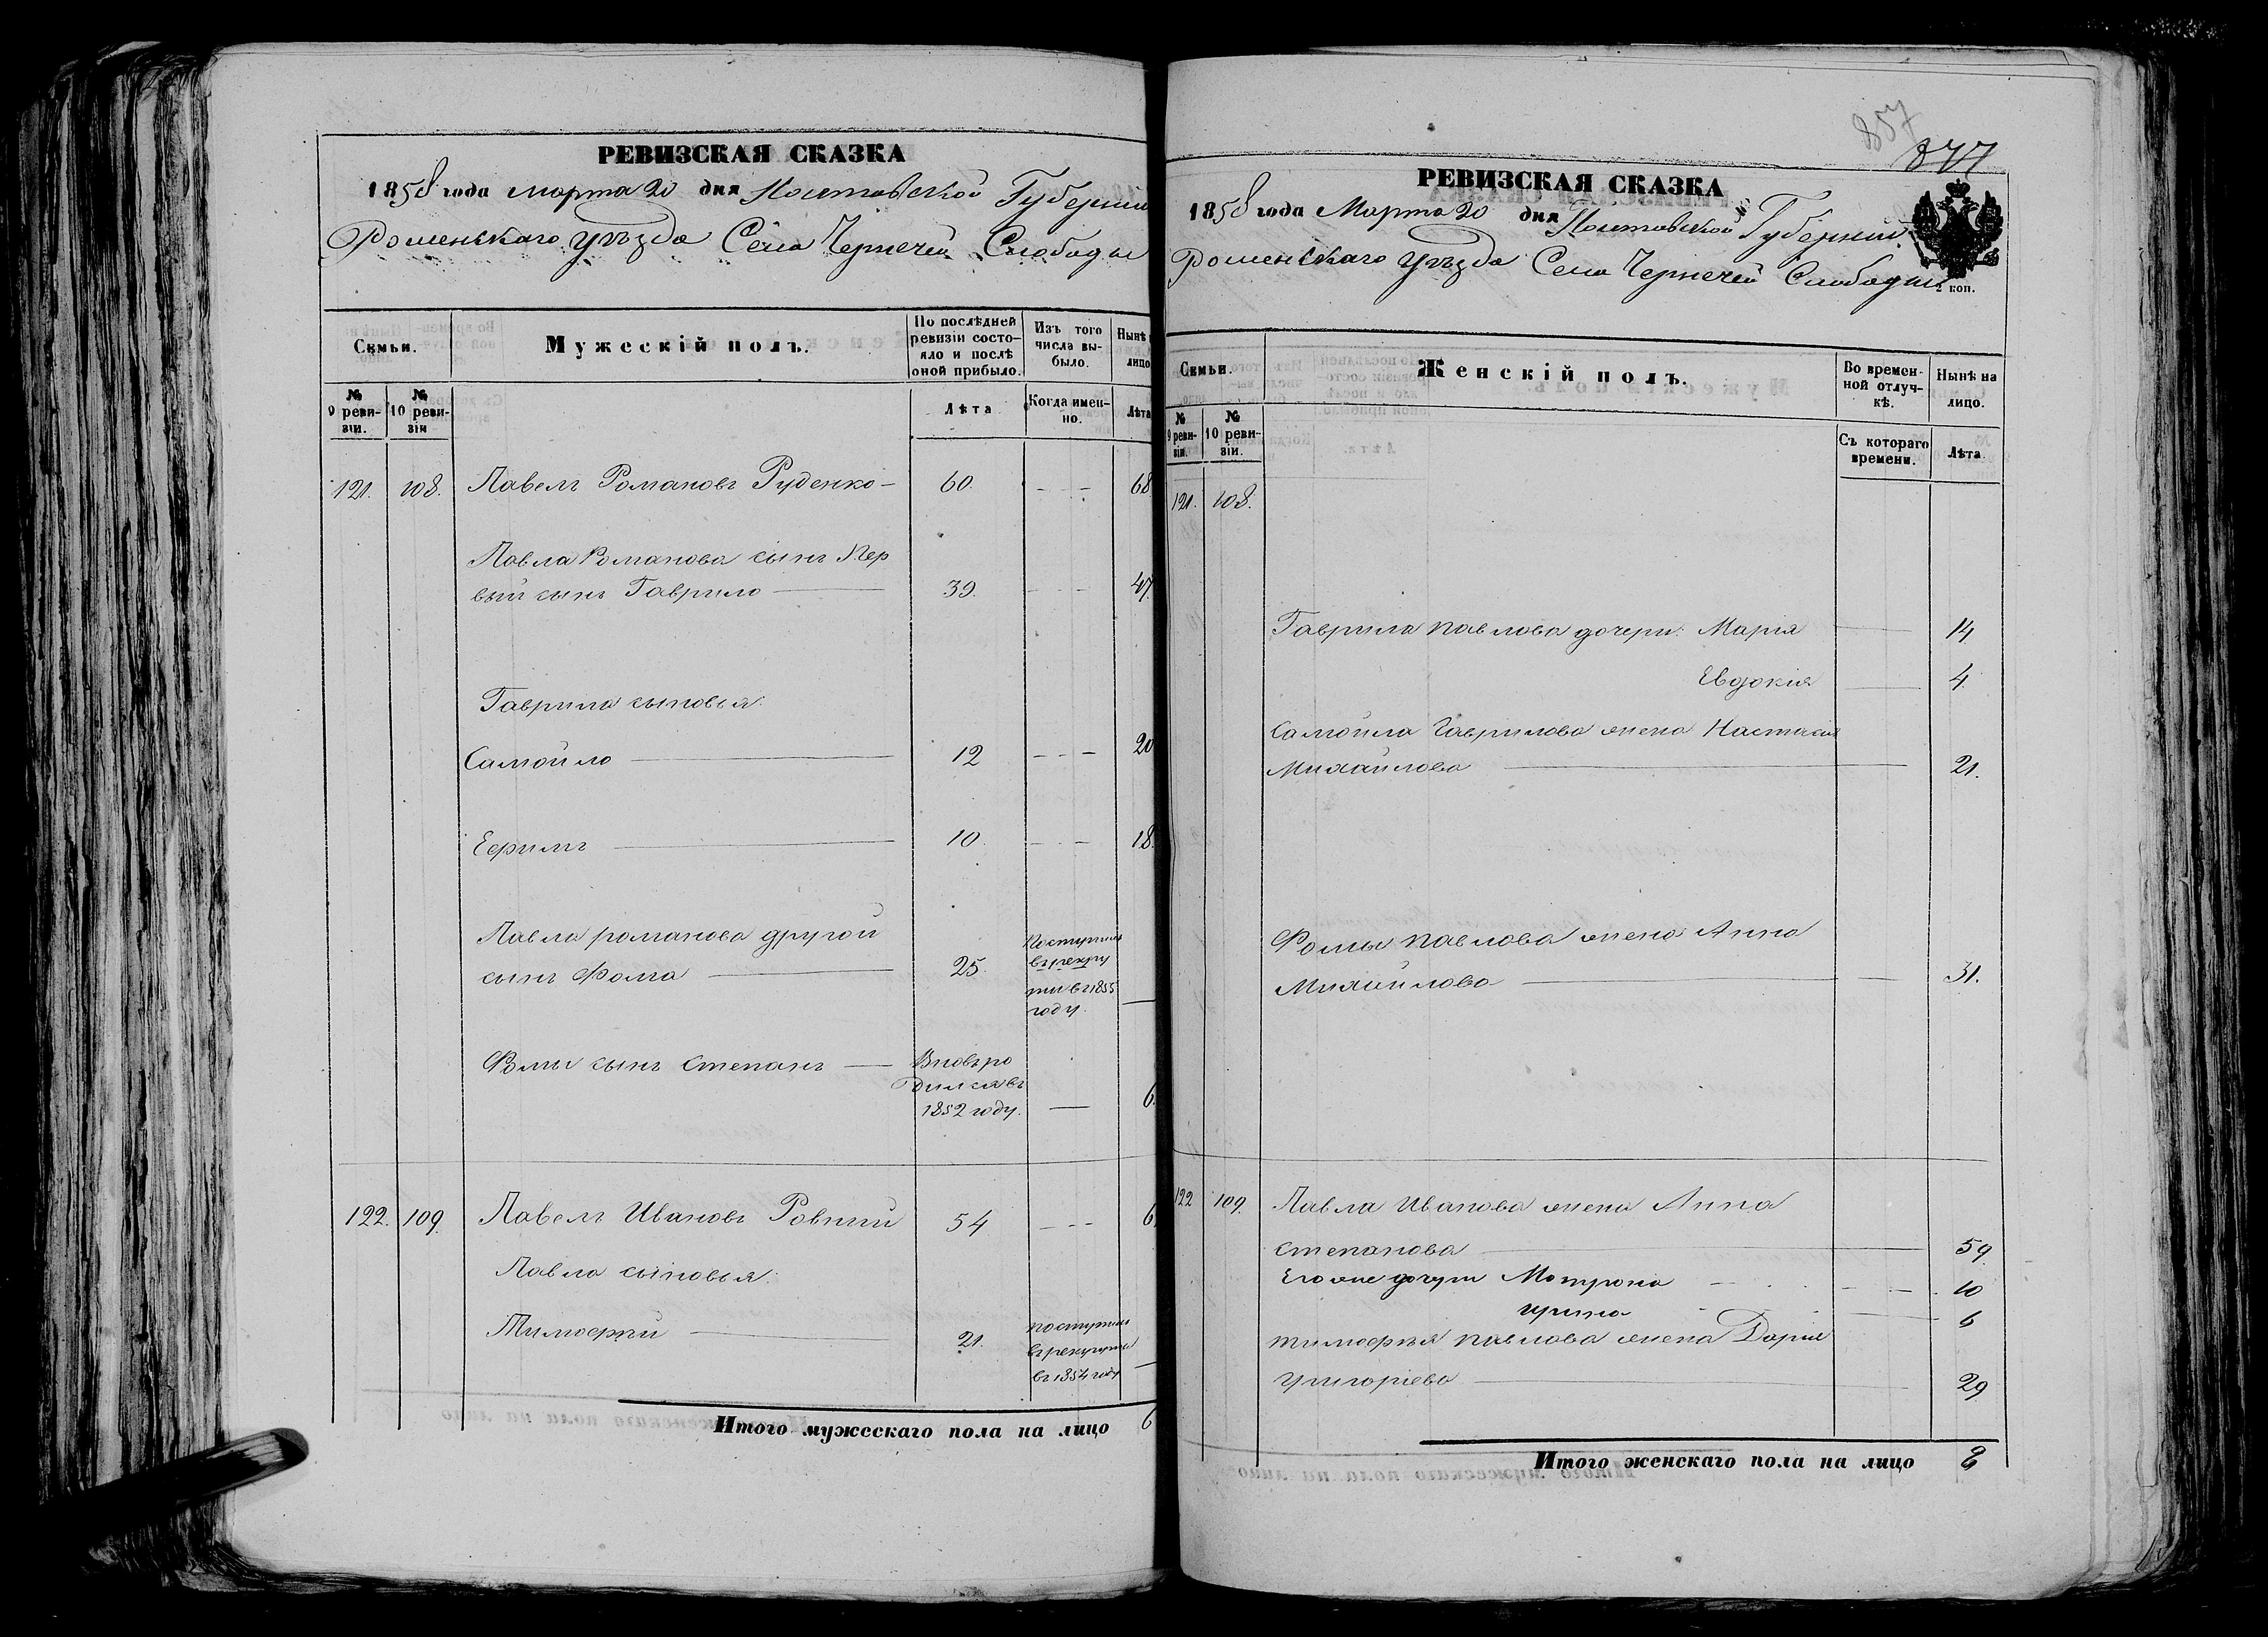 РЕВИЗСКАЯ СКАЗКА
1858 года марта 20 дня Полтавской Губерніи
Роменскаго уѣзда Села Чернечей Слободы
Семьи.
Мужескій полъ.
По послѣдней ревизіи состояло и послѣ оной прибыло.
Изъ того числа выбыло.
Нынѣ
лицо
№ 9 ревизіи.
№ 10 ревизіи
Лѣта
Когда именно.
Лѣта
121. 108. Павелъ Романовъ Руденко — 60. 68
Павла Романова сынъ Пер
вый сынъ Гаврило — 39. 47.
Гаврила сыновья:
Самойло — 12 20
Ефимъ — 10. 18.
Павла романова другой
сынъ Фома — 25.
Поступилъ
въ рекру
ты въ 1855
году. —
Фомы сынъ Степанъ —
Вновь ро
дился въ
1852 году. — 6.
122. 109. Павелъ Ивановъ Ровный 54 6
Павла сыновья:
Тимофей — 21.
поступилъ
въ рекруты
въ 1854 году —
Итого мужескаго пола на лицо 6
857
877
РЕВИЗСКАЯ СКАЗКА
1858 года Марта 20 дня Полтавской Губерніи
Роменскаго уѣзда Села Чернечей Слободы
2 коп.
Семьи.
Женскій полъ.
Во временной отлучкѣ.
Нынѣ на лицо.
№ 9 ревизіи.
№ 10 ревизіи.
Съ котораго времени.
Лѣта
121. 108.
Гаврила Павлова дочери: Марія — 14
Евдокія — 4.
Самойла Гаврилова жена Настасия
Михайлова — 21.
Фомы Павлова жена Анна
Михайлова — 31.
122 109. Павла Иванова жена Анна
Степанова — 59
Его же дочери Мотрона 10
Ирина 6
Тимофея Павлова жена Дарія
Григоріева — 29
Итого женскаго пола на лицо 8